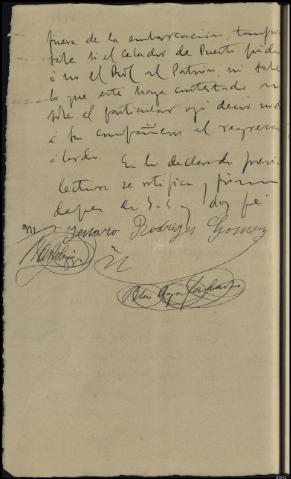 fuera de la embarcación, tampoco
sabe si el Celador de Puerto pidió
ó no el Rol al Patrón, ni sabe
lo que este haya contestado, ni
sobre el particular oyó decir nada
á sus compañeros al regresar
á bordo. En lo declarado previa
lectura se ratifica y firma
despues de S.S. doy fé
Jenaro Rodrigez Gomez
Blas